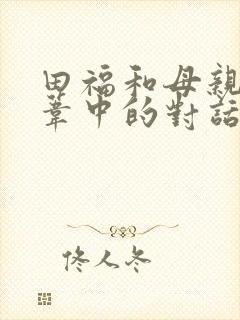 田福和母親
葦中的對話
佟人冬